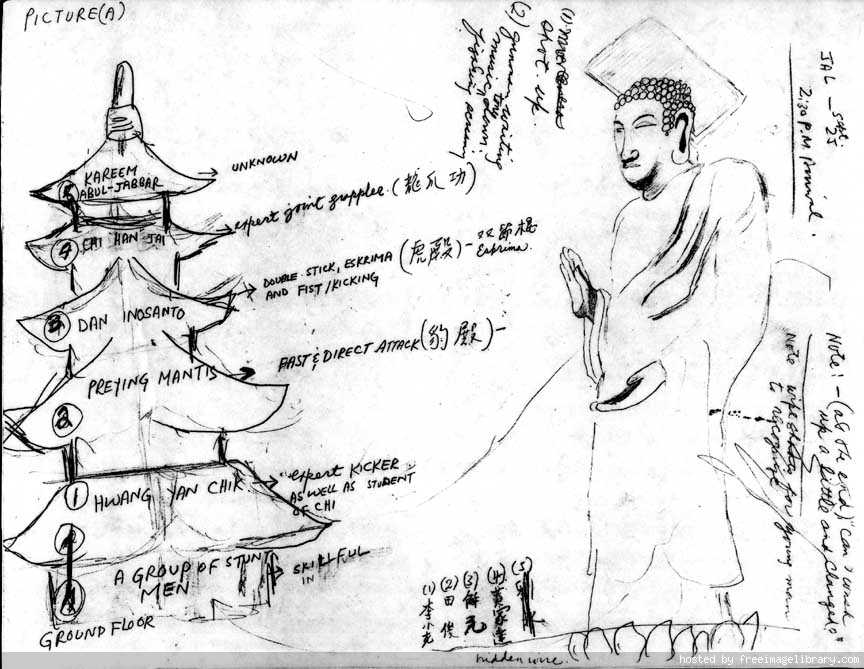 PICTURE(A)
KAREEM
ABUL-JABBAR
UNKNOWN
4
CHI HAN JAI
expert joint grappler. (龍爪功)
3
DAN INOSANTO
DOUBLE STICK, ESKRIMA
AND FIST/KICKING
(虎殿)- 双節棍
Eskrima.
PREYING MANTIS
FAST & DIRECT ATTACK (豹殿)-
2
1
HWANG YAN CHIK
expert KICKER
AS WELL AS STUDENT
OF CHI
A GROUP OF STUNT
MEN
SKILLFUL
IN
GROUND FLOOR
(1)
shot up
(2)
music
JAL - Sat
25
2:30 P.M Arrival.
Note! - (at the end) "can I wash
up a little and change?"
Note wipe for young man
to recognize
(1) 李小龍
(2) 田俊
(3) 解元
(4) 黃家達
(5)
hidden wire.
hosted by freeimagelibrary.com